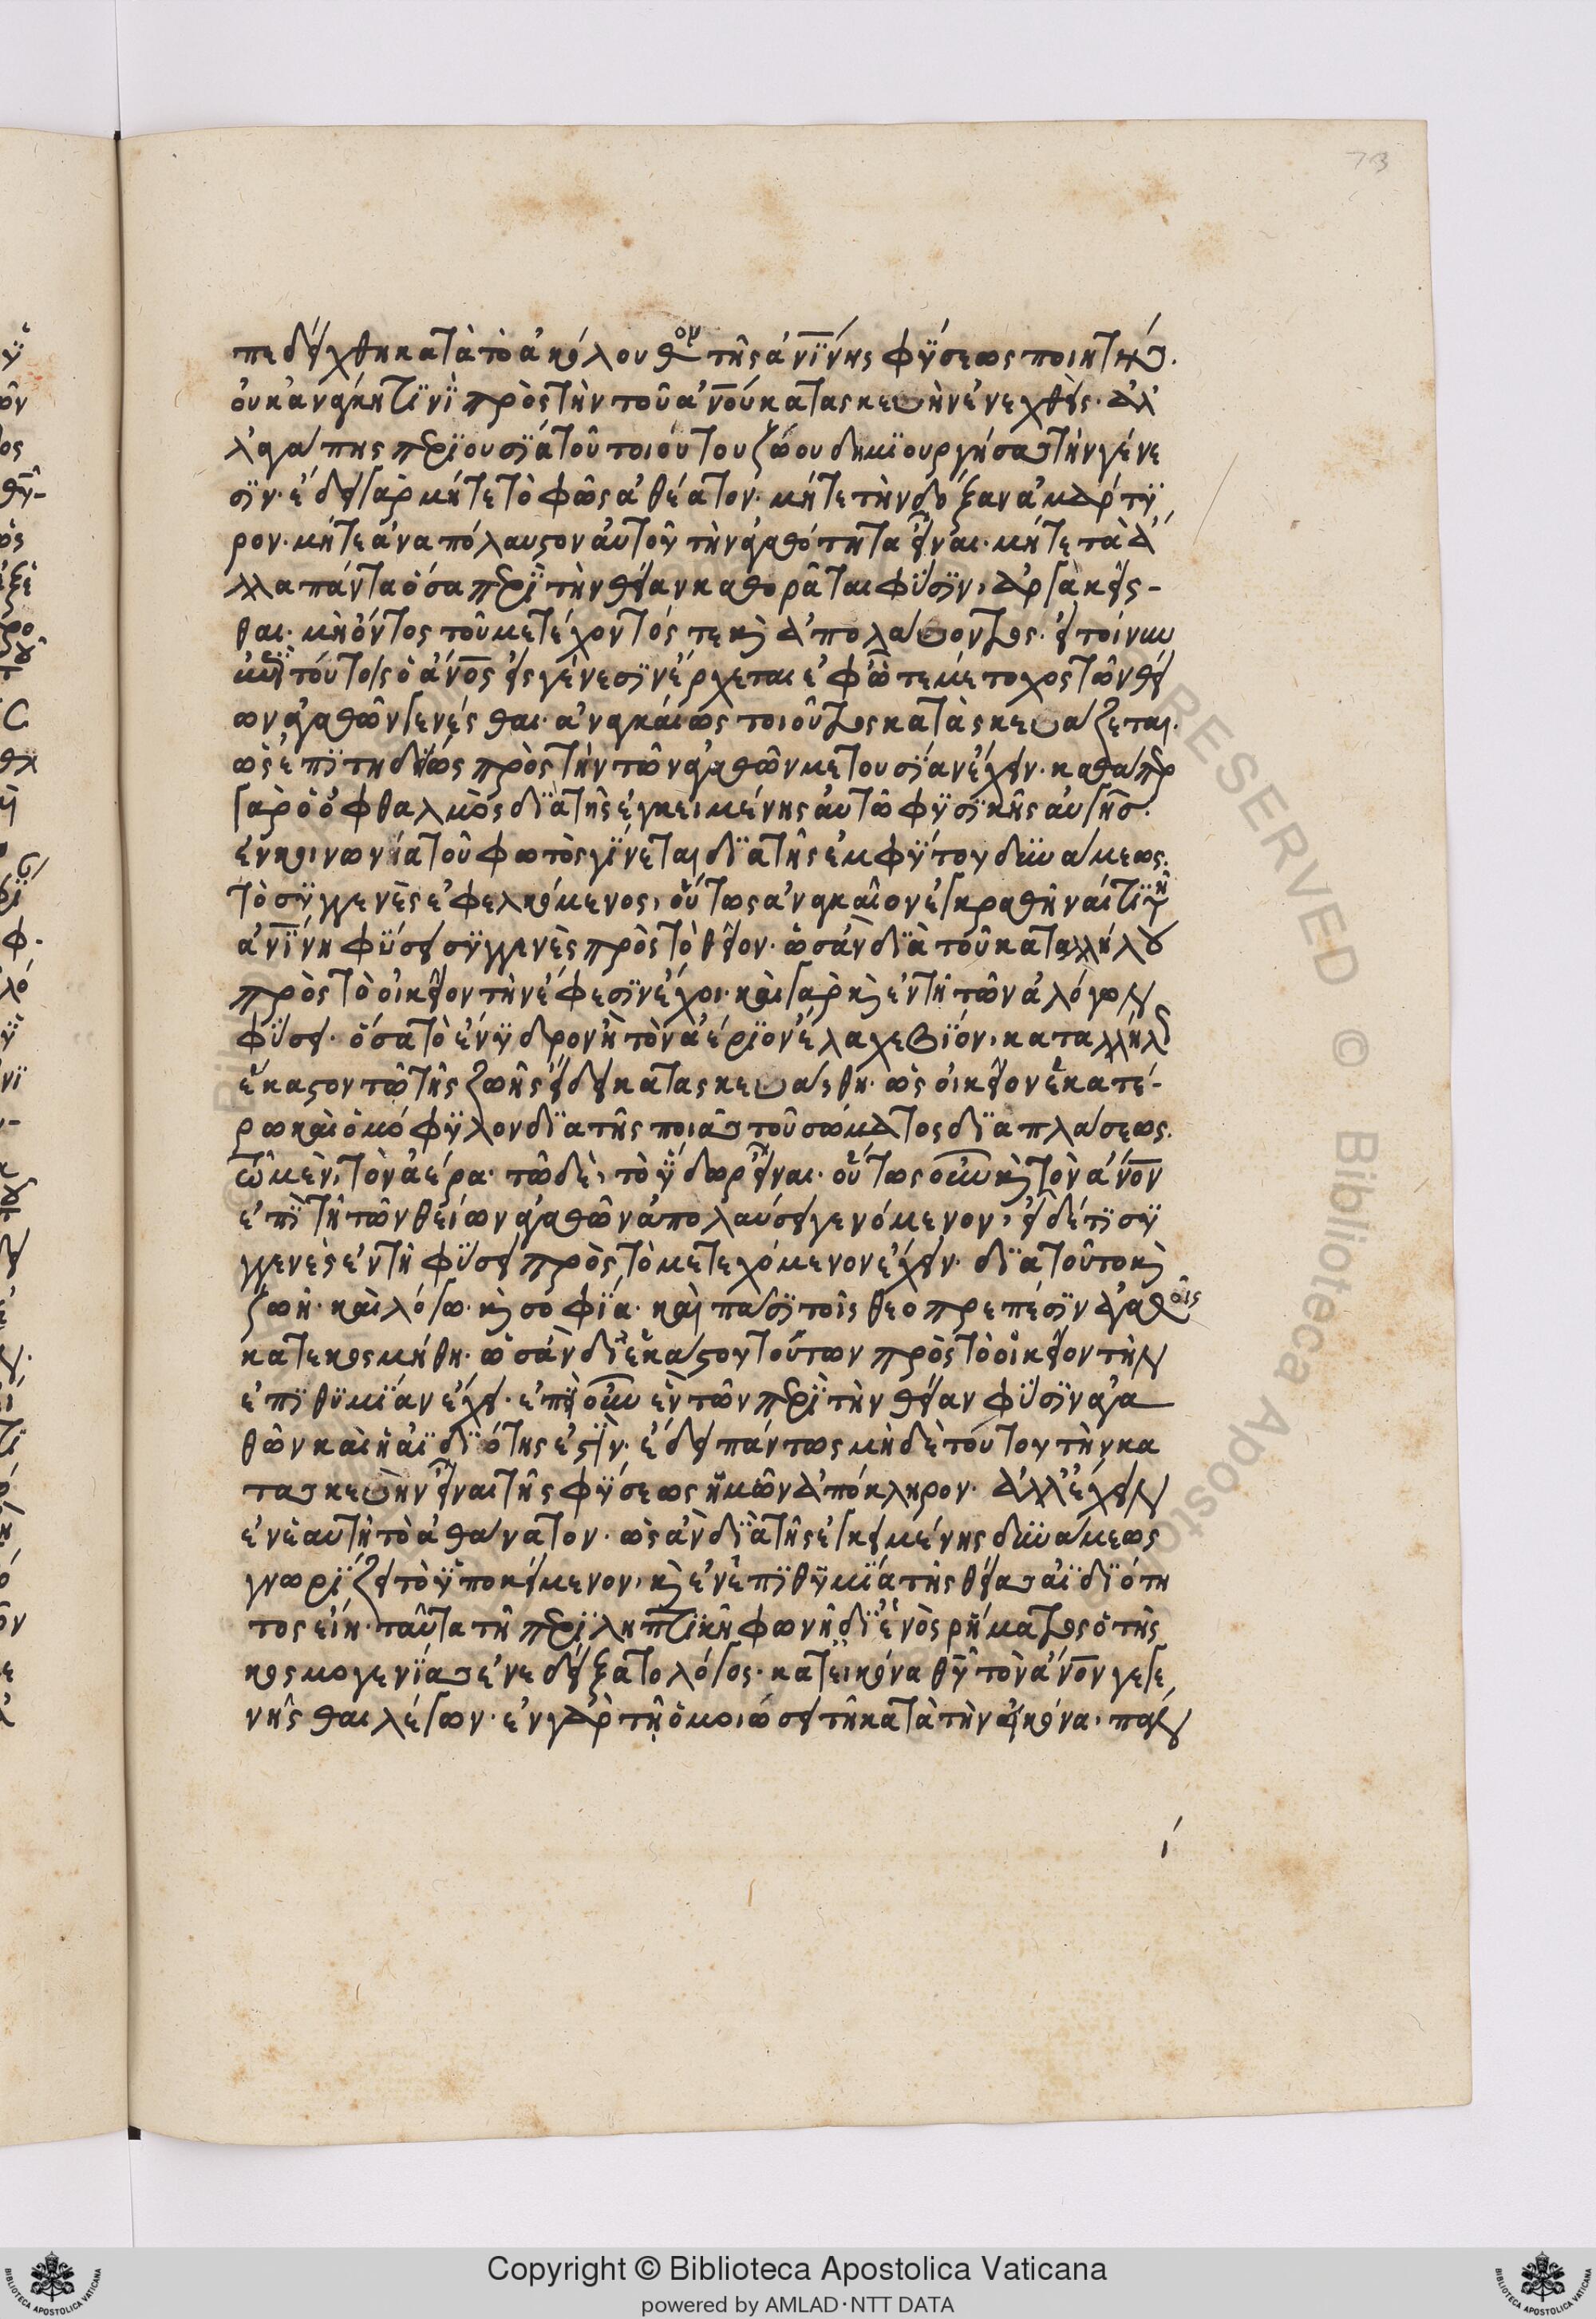 73
πεδείχθη κατὰ τὸ ἀκόλουθον τῆς ἀνΐνης φύσεως ποιητής.
οὐκ ἀνάγκη τινὶ πρὸς τὴν τοῦ ἀνου κατασκευὴν ἐνεχθείς· ἀλ
λ' ἀγάπης περιουσία τοῦ τοιούτου ζώου δημιουργήσας τὴν γένε
σιν· ἔδει γὰρ μήτε τὸ φῶς ἀθέατον· μήτε τὴν δόξαν ἀμάρτυ
ρον· μήτε ἀναπόλαυστον αὐτοῦ τὴν ἀγαθότητα εἶναι· μήτε τὰ ἄ
λλα πάντα ὅσα περὶ τὴν θείαν καθορᾶται φύσιν, ἀργὰ κεῖσ-
θαι· μὴ ὄντος τοῦ μετέχοντός τε κ ἀπολαύοντος· εἰ τοίνυν
ἐπὶ τούτοις ὁ ἄνος εἰς γένεσιν ἔρχεται ἐφ' ᾧ τε μέτοχος τῶν θεί
ων ἀγαθῶν γενέσθαι· ἀναγκαίως τοιοῦτος κατασκευάζεται·
ὡς ἐπιτηδείως πρὸς τὴν τῶν ἀγαθῶν μετουσίαν ἔχειν· καθάπερ
γὰρ ὁ ὀφθαλμὸς διὰ τῆς ἐγκειμένης αὐτῷ φυσικῆς αὐγῆς·
ἐν κοινωνία τοῦ φωτὸς γίνεται διὰ τῆς ἐμφύτου δυνάμεως·
τὸ συγγενὲς ἐφελκόμενος, οὕτως ἀναγκαῖον ἐγκραθῆναί τι τῆ
ἀνΐνη φύσει συγγενὲς πρὸς τὸ θεῖον· ὡς ἂν διὰ τοῦ καταλλήλου
πρὸς τὸ οἰκεῖον τὴν ἔφεσιν ἔχοι· καὶ γὰρ κ ἐν τῆ τῶν ἀλόγων
φύσει· ὅσα τὸ ἔνυδρον ἢ τὸν ἀέριον ἔλαχε βίον, καταλλήλως
ἕκαστον τῷ τῆς ζωῆς εἴδει κατασκευάσθη· ὡς οἰκεῖον ἑκατέ-
ρω καὶ ὁμόφυλον διὰ τῆς ποιᾶς τοῦ σώματος διαπλάσεως·
τῷ μὲν, τὸν ἀέρα· τῷ δὲ, τὸ ὕδωρ εἶναι· οὕτως οὖν κ τὸν ἄνον
ἐπὶ τῆ τῶν θείων ἀγαθῶν ἀπολαύσει γενόμενον, ἔδει τι συ
γγενὲς ἐν τῆ φύσει πρὸς τὸ μετεχόμενον ἔχειν· διὰ τοῦτο κ
ζωῆ· καὶ λόγω· κ σοφία· καὶ πᾶσι τοῖς θεοπρεπέσιν ἀγαθοῖς
κατεκοσμήθη· ὡς ἂν δι' ἑκάστου τούτων πρὸς τὸ οἰκεῖον τὴν
ἐπιθυμίαν ἔχει· ἐπεὶ οὖν ἓν τῶν περὶ τὴν θείαν φύσιν ἀγα
θῶν καὶ ἡ ἀϊδιότης ἐστὶν· ἔδει πάντως μηδὲ τούτου τὴν κα
τασκευὴν εἶναι τῆς φύσεως ἡμῶν ἀπόκληρον· ἀλλ' ἔχειν
ἐν ἑαυτῆ τὸ ἀθάνατον· ὡς ἂν διὰ τῆς ἐγκειμένης δυνάμεως
γνωρίζει τὸ ὑποκείμενον, κ ἐν ἐπιθυμία τῆς θείας ἀϊδιότη
τος εἴη· ταῦτα τῆ περιληπτικῆ φωνῆ δι' ἑνὸς ῥήματος ὁ τῆς
κοσμογενίας ἐνεδείξατο λόγος· κατ' εἰκόνα θυ τὸν ἄνον γεγε
νῆσθαι λέγων· ἐν γὰρ τῆ ὁμοιώσει τῆ κατὰ τὴν εἰκόνα, πάν
Copyright © Biblioteca Apostolica Vaticana
powered by AMLAD·NTT DATA